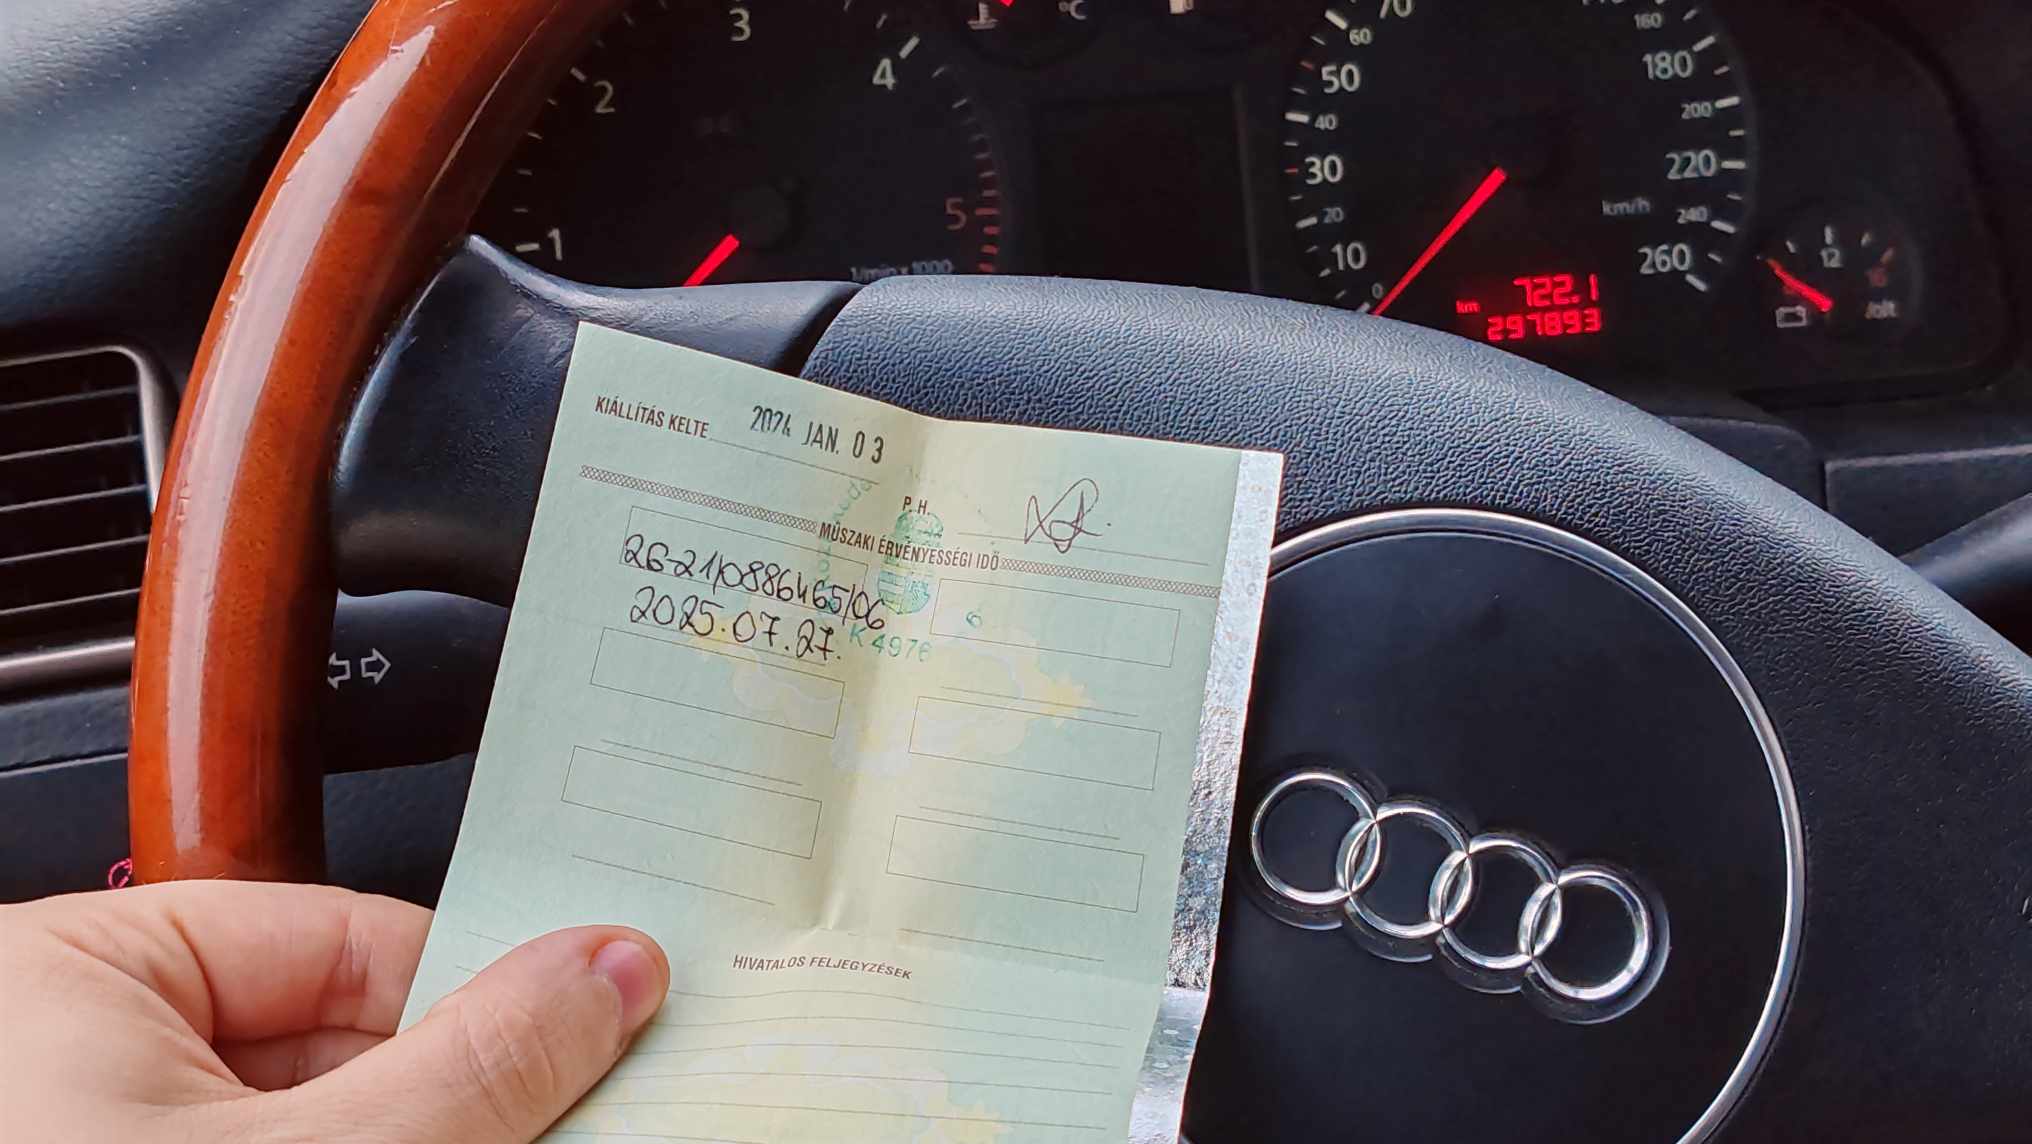 1
2
3
4
5
1/min x 1000
°C
10
20
30
40
50
60
70
160
180
200
220
240
260
km/h
0
km
722.1
297893
12
16
KIÁLLÍTÁS KELTE 2024 JAN. 03
P. H.
MŰSZAKI ÉRVÉNYESSÉGI IDŐ
26-21/0886465/06
2025.07.27.
K 4976
6
HIVATALOS FELJEGYZÉSEK